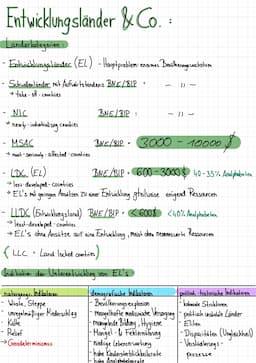 Entwicklungsländer & Co. :
Länderkategorien
- Entwicklungsländer (EL) - Hauptproblem: enormes Bevölkerungswachstum
- Schwellenländer mit Aufwärtstendenz BNE/BIP - - " -
→ take-off-countries
- NIC BNE/BIP : - " -
→ newly-industrialising countries
- MSAC BNE/BIP - 3000 - 10000 $
→ most-seriously-affected-countries
- LDC (EL) BNE/BIP - 600-3000 $ 40-35% Analphabeten
→ less-developed-countries
→ EL's mit geringen Ansätzen zu einer Entwicklung, teilweise genügend Ressourcen
- LLDC (Entwicklungsland) BNE/BIP < 600 $ <40% Alphabeten
→ least-developed-countries
→ EL's ohne Ansätze auf eine Entwicklung, meist ohne nennenswerte Ressourcen
( LLC - Land locked contries )
Indikatoren der Unterentwicklung von EL's
naturgeogr. Indikatoren
- Wüste, Steppe
- unregelmäßiger Niederschlag
- Kälte
- Relief
→ Geodeterminismus
demografische Indikatoren
- Bevölkerungsexplosion
- mangelhafte medizinische Versorgung
- mangelnde Bildung, Hygiene
- Mangel- & Fehlernährung
- niedrige Lebenserwartung
- hohe Kindersterblichkeitsrate
- hohe Analphabetenrate
politisch-historische Indikatoren
- koloniale Strukturen
- politisch instabile Länder
- Eliten
- Disparitäten (Ungleichheit)
- Verstädterungs-
prozesse